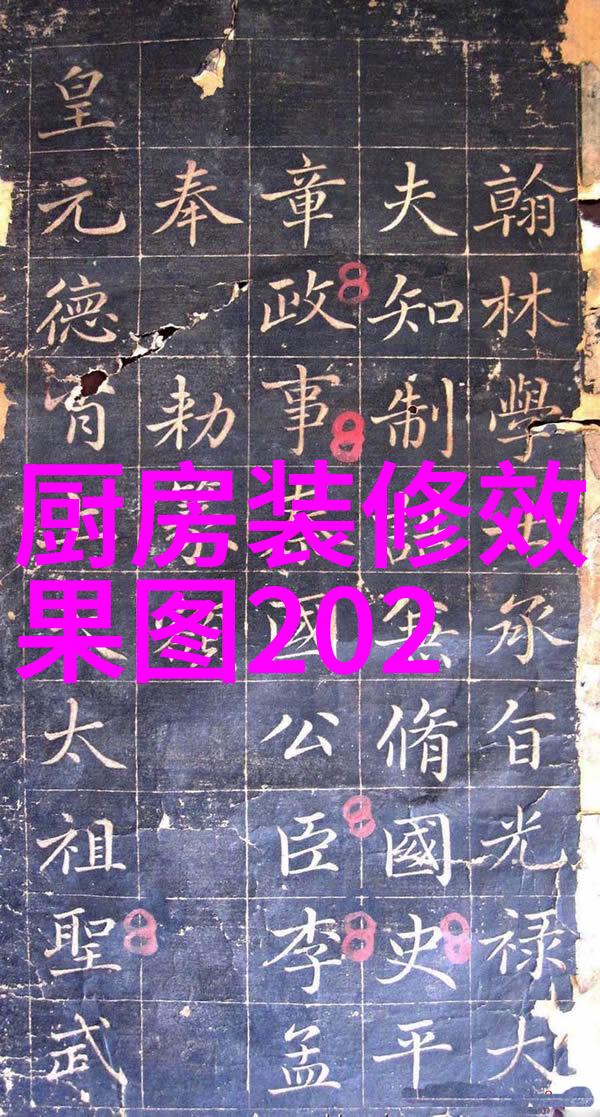 厨房装修效
果图202
翰林學士承旨光禄大
夫知制兼脩國史平
章政事國公臣李孟
奉勑篆
皇元德育太祖聖武